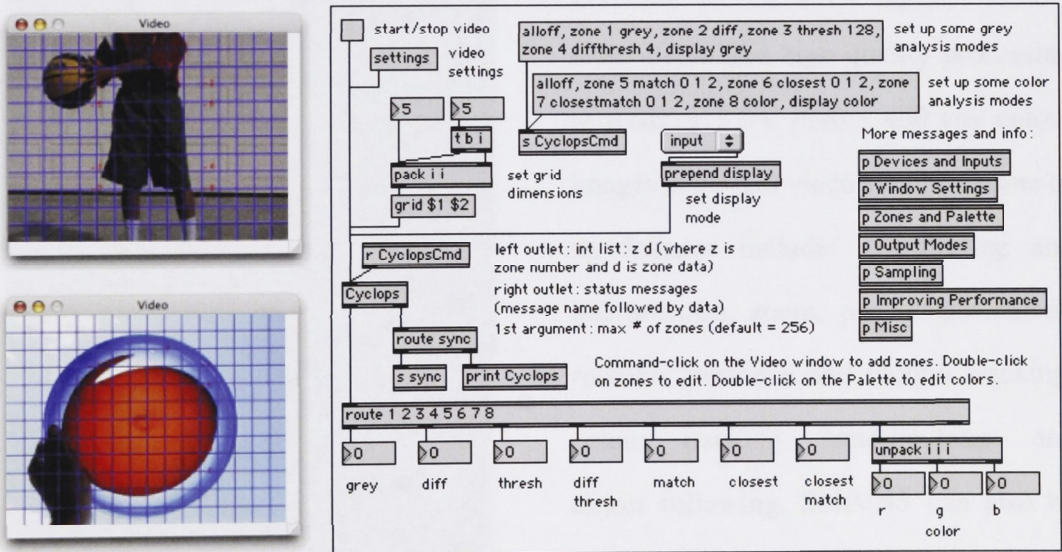 Video
Video
start/stop video
settings
video
settings
5
5
t b i
pack i i
grid $1 $2
set grid
dimensions
alloff, zone 1 grey, zone 2 diff, zone 3 thresh 128,
zone 4 diffthresh 4, display grey
set up some grey
analysis modes
alloff, zone 5 match 0 1 2, zone 6 closest 0 1 2, zone
7 closestmatch 0 1 2, zone 8 color, display color
set up some color
analysis modes
s CyclopsCmd
input
prepend display
set display
mode
More messages and info:
p Devices and Inputs
p Window Settings
p Zones and Palette
p Output Modes
p Sampling
p Improving Performance
p Misc
r CyclopsCmd
Cyclops
left outlet: int list: z d (where z is
zone number and d is zone data)
right outlet: status messages
(message name followed by data)
1st argument: max # of zones (default = 256)
route sync
s sync
print Cyclops
Command-click on the Video window to add zones. Double-click
on zones to edit. Double-click on the Palette to edit colors.
route 1 2 3 4 5 6 7 8
0
0
0
0
0
0
0
unpack i i i
0
0
0
grey
diff
thresh
diff
thresh
match
closest
closest
match
r
g
b
color